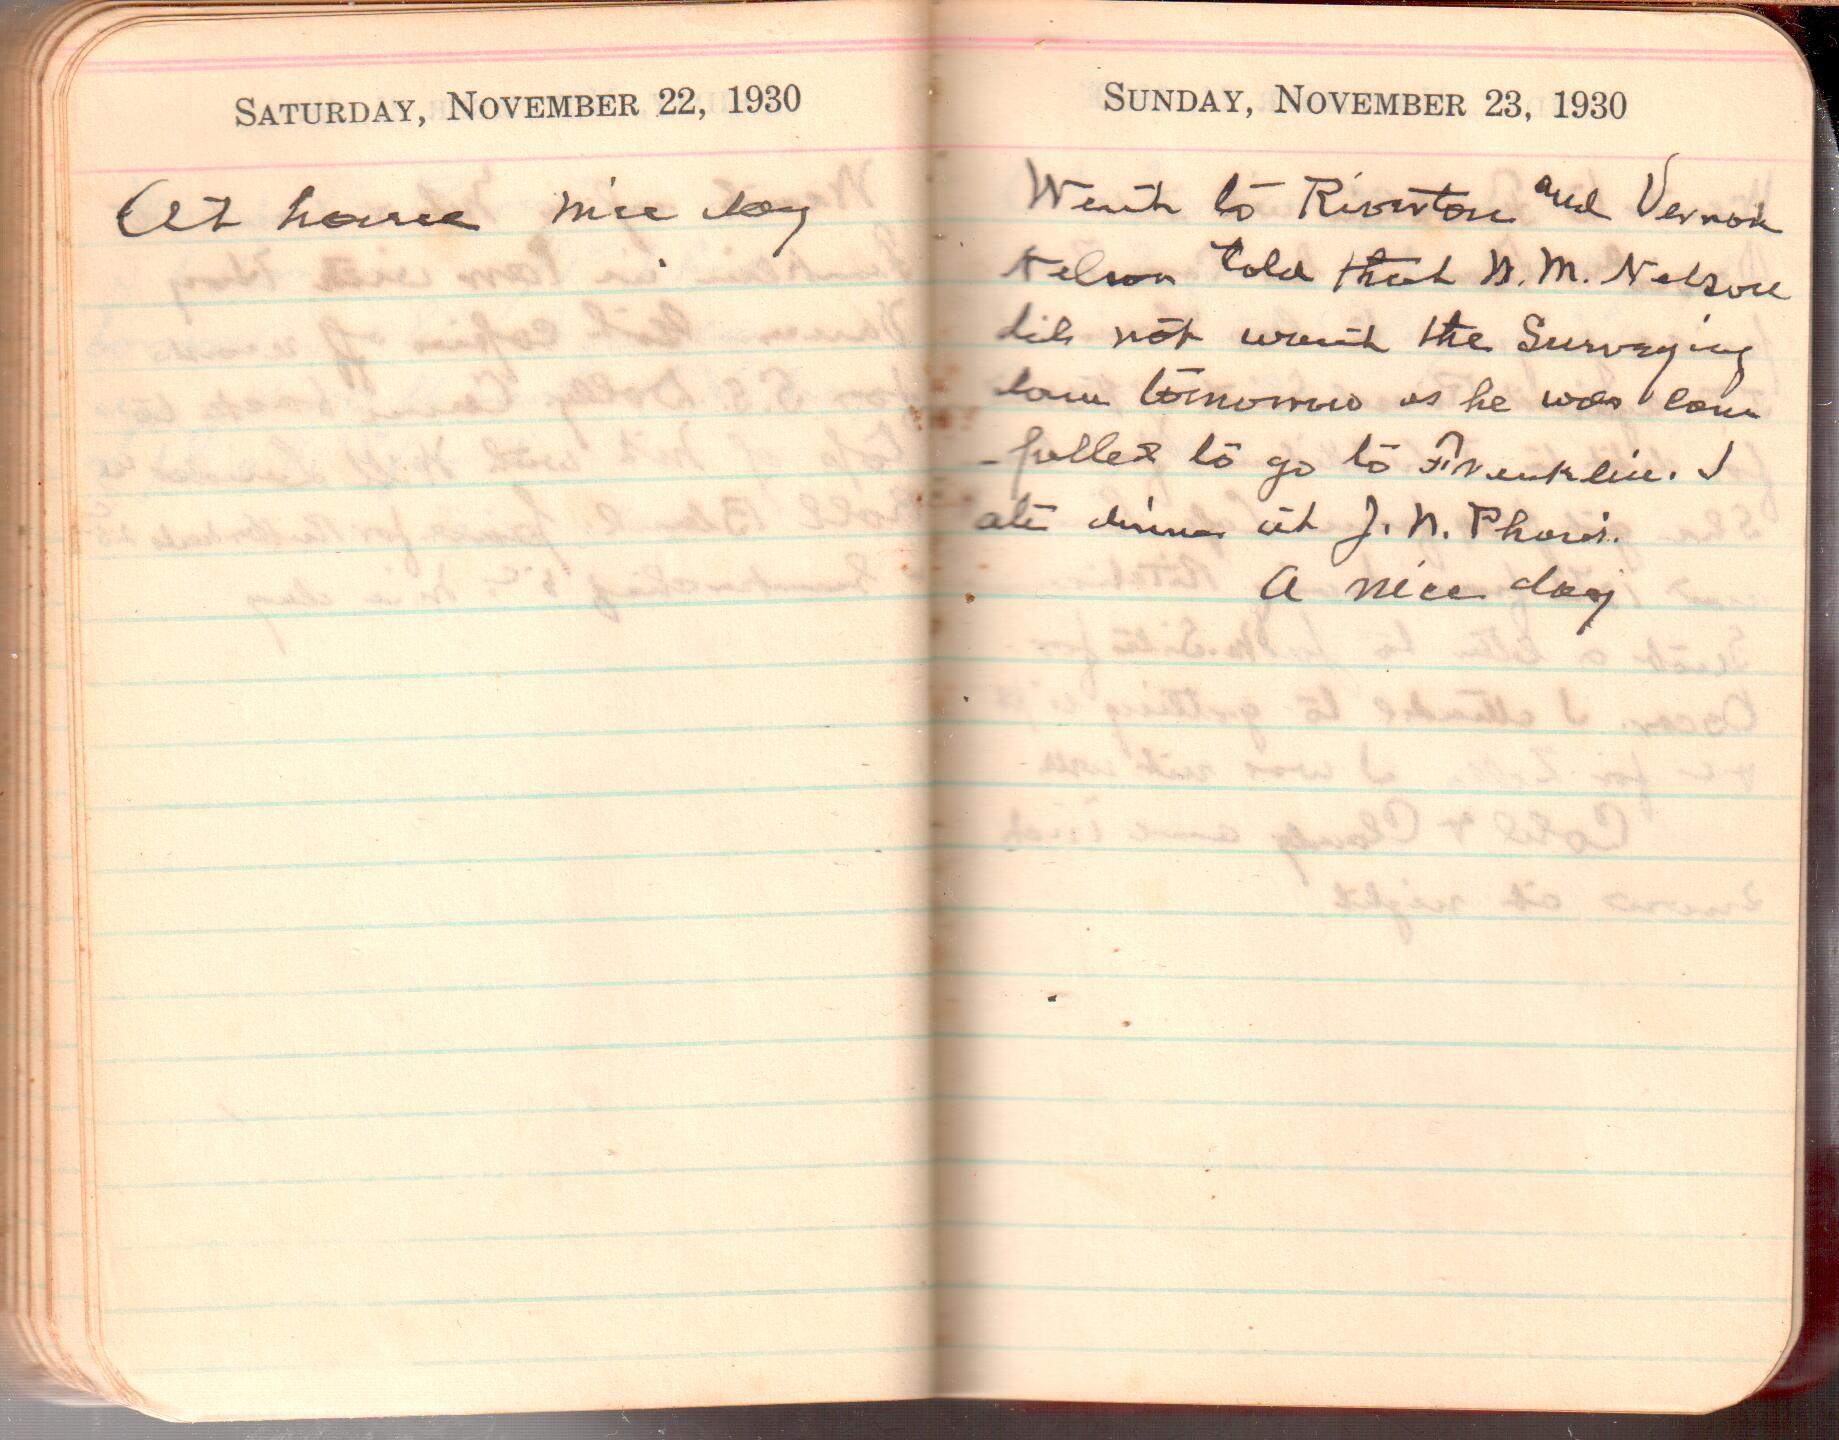 SATURDAY, NOVEMBER 22, 1930
At home nice day
SUNDAY, NOVEMBER 23, 1930
Went to Riverton and Vernon
Nelson told that N. M. Nelson
did not want the Surveying
done tomorrow as he was com
-pelled to go to Franklin. I
ate dinner at J. N.
A nice day